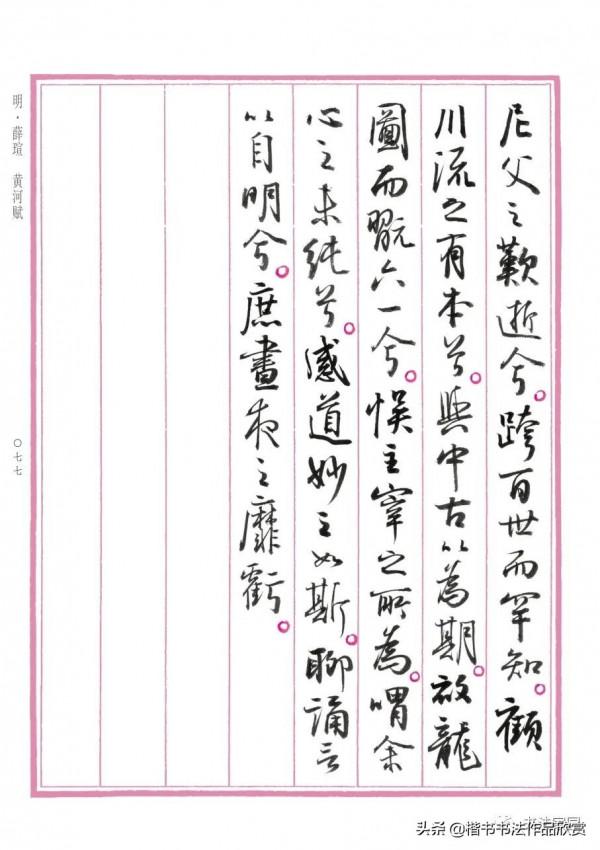 尼父之歎逝兮。跨百世而罕知。顧
川流之有本兮。與中古以為期。龍
圖而翫六一兮。悮主宰之所為。喟余
心之未純兮。感道妙之如斯。聊誦言
以自明兮。庶晝夜之靡虧。
明·薛瑄 黄河赋
〇七七
头条 @楷书书法作品欣赏